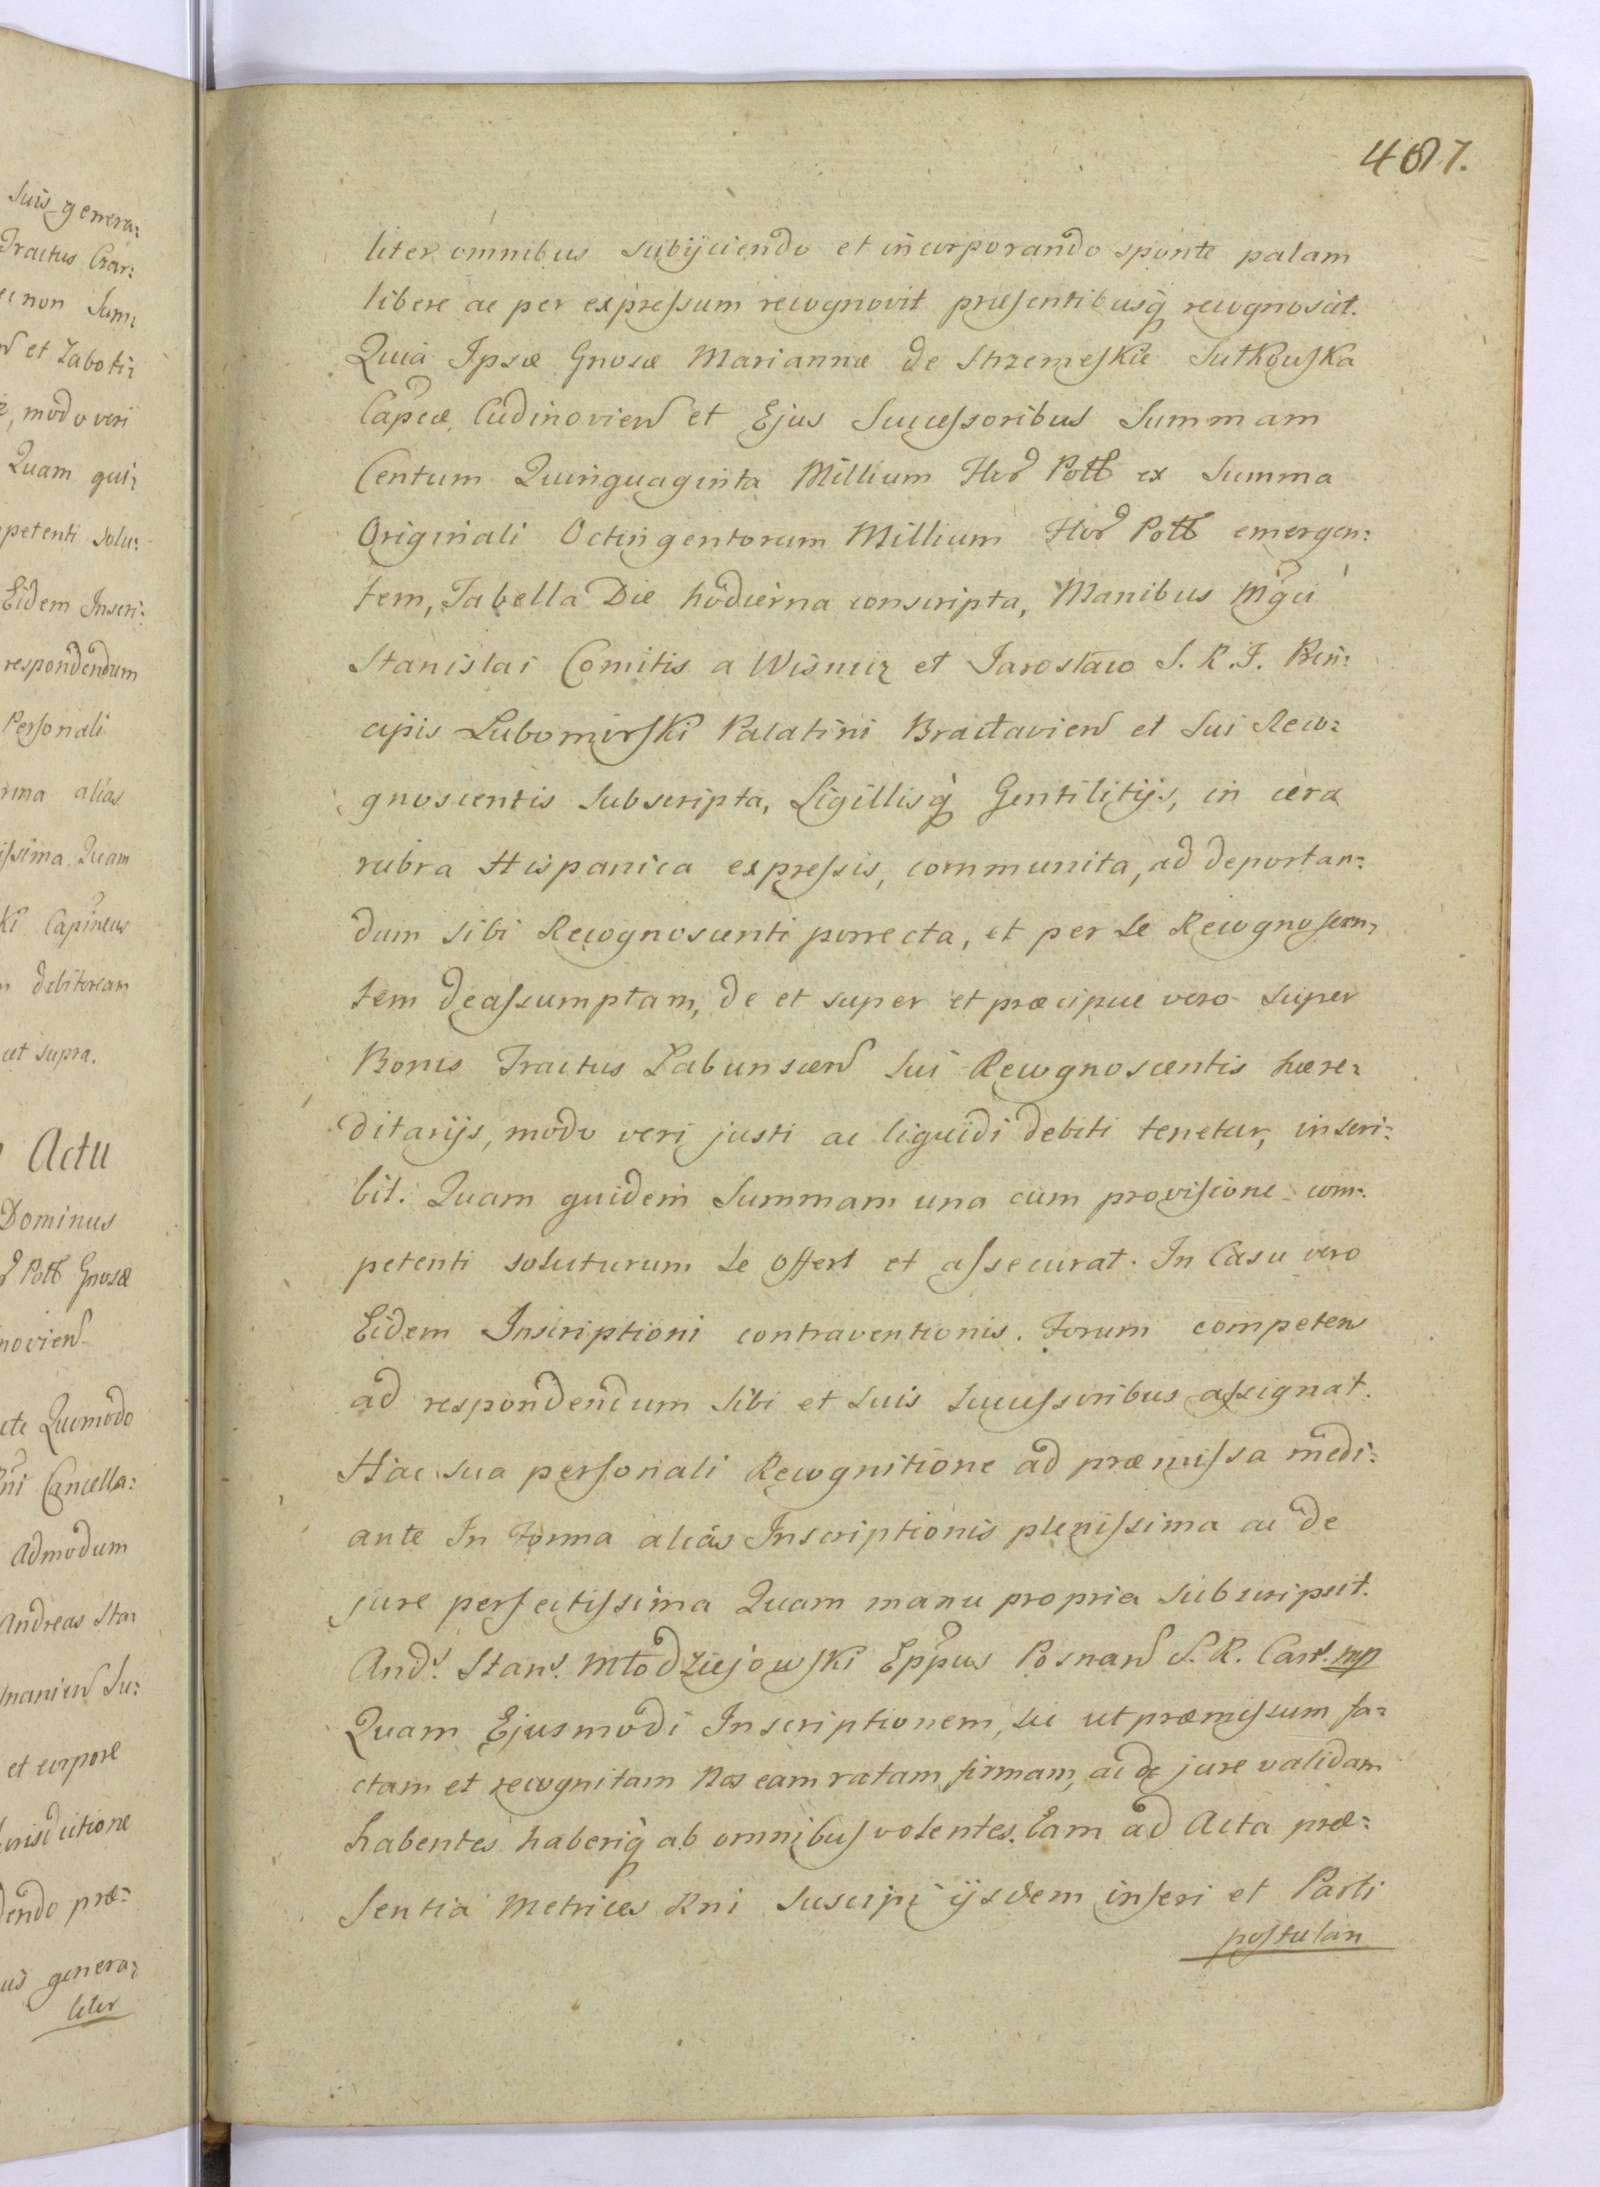 Suis genera:
Tractus Czar:
non Sum:
et Zaboti:
modo veri
Quam qui:
petenti solu:
Eidem Inscri:
respondendum
Personali
alias
issima Quam
Capineus
debitoream
ut supra.
Actu
Dominus
Pollˡ Gnosæ
novien
Quemodo
Cancella:
Admodum
Andreas Sta:
manien Su:
et corpore
Jurisdictione
dendo præ:
genera:
liter
487.
liter omnibus subijciendo et incorporando sponte palam
libere ac per expressum recognovit præsentibusq; recognoscit.
Quia Ipsæ Gnosæ Mariannæ de Strzemeskie Sutkouska
Capneæ Cudinovien et Ejus Successoribus Summam
Centum Quinquaginta Millium Flor Poll ex Summa
Originali Octingentorum Millium Flor Poll emergen:
tem, Tabella Die hodierna conscripta, Manibus Mgci
Stanislai Comitis a Wisnicz et Jaroslaw S. R. I. Prin:
cipis Lubomirski Palatini Bractavien et Sui Reco:
gnoscentis Subscripta, Sigillisq; Gentilitijs, in cera
rubra Hispanica expressis, communita, ad deportan:
dum sibi Recognoscenti porrecta, et per Se Recognoscen:
tem deassumptam, de et super et præcipue vero super
Bonis Tractus Labunscen Sui Recognoscentis hære:
ditarijs, modo veri justi ac liquidi debiti tenetur, inscri:
bit. Quam quidem Summam una cum provisione com:
petenti soluturum Se offert et assecurat. In Casu vero
Eidem Inscriptioni contraventionis. Forum competens
ad respondendum Sibi et Suis Successoribus assignat.
Hac sua personali Recognitione ad præmissa medi:
ante In Forma alias Inscriptionis plenissima ac de
jure perfectissima Quam manu propria subscripsit.
Andˢ. Stanˢ. Młodziejowski Eppus Posnan S. R. Canˢ. mp
Quam Ejusmodi Inscriptionem, sic ut præmissum fa:
ctam et recognitam Nos eam ratam firmam, ac de jure validam
habentes haberiq; ab omnibus volentes. Eam ad Acta præ:
sentia Metrices Rni Suscipi ijsdem inseri et Parti
postulan